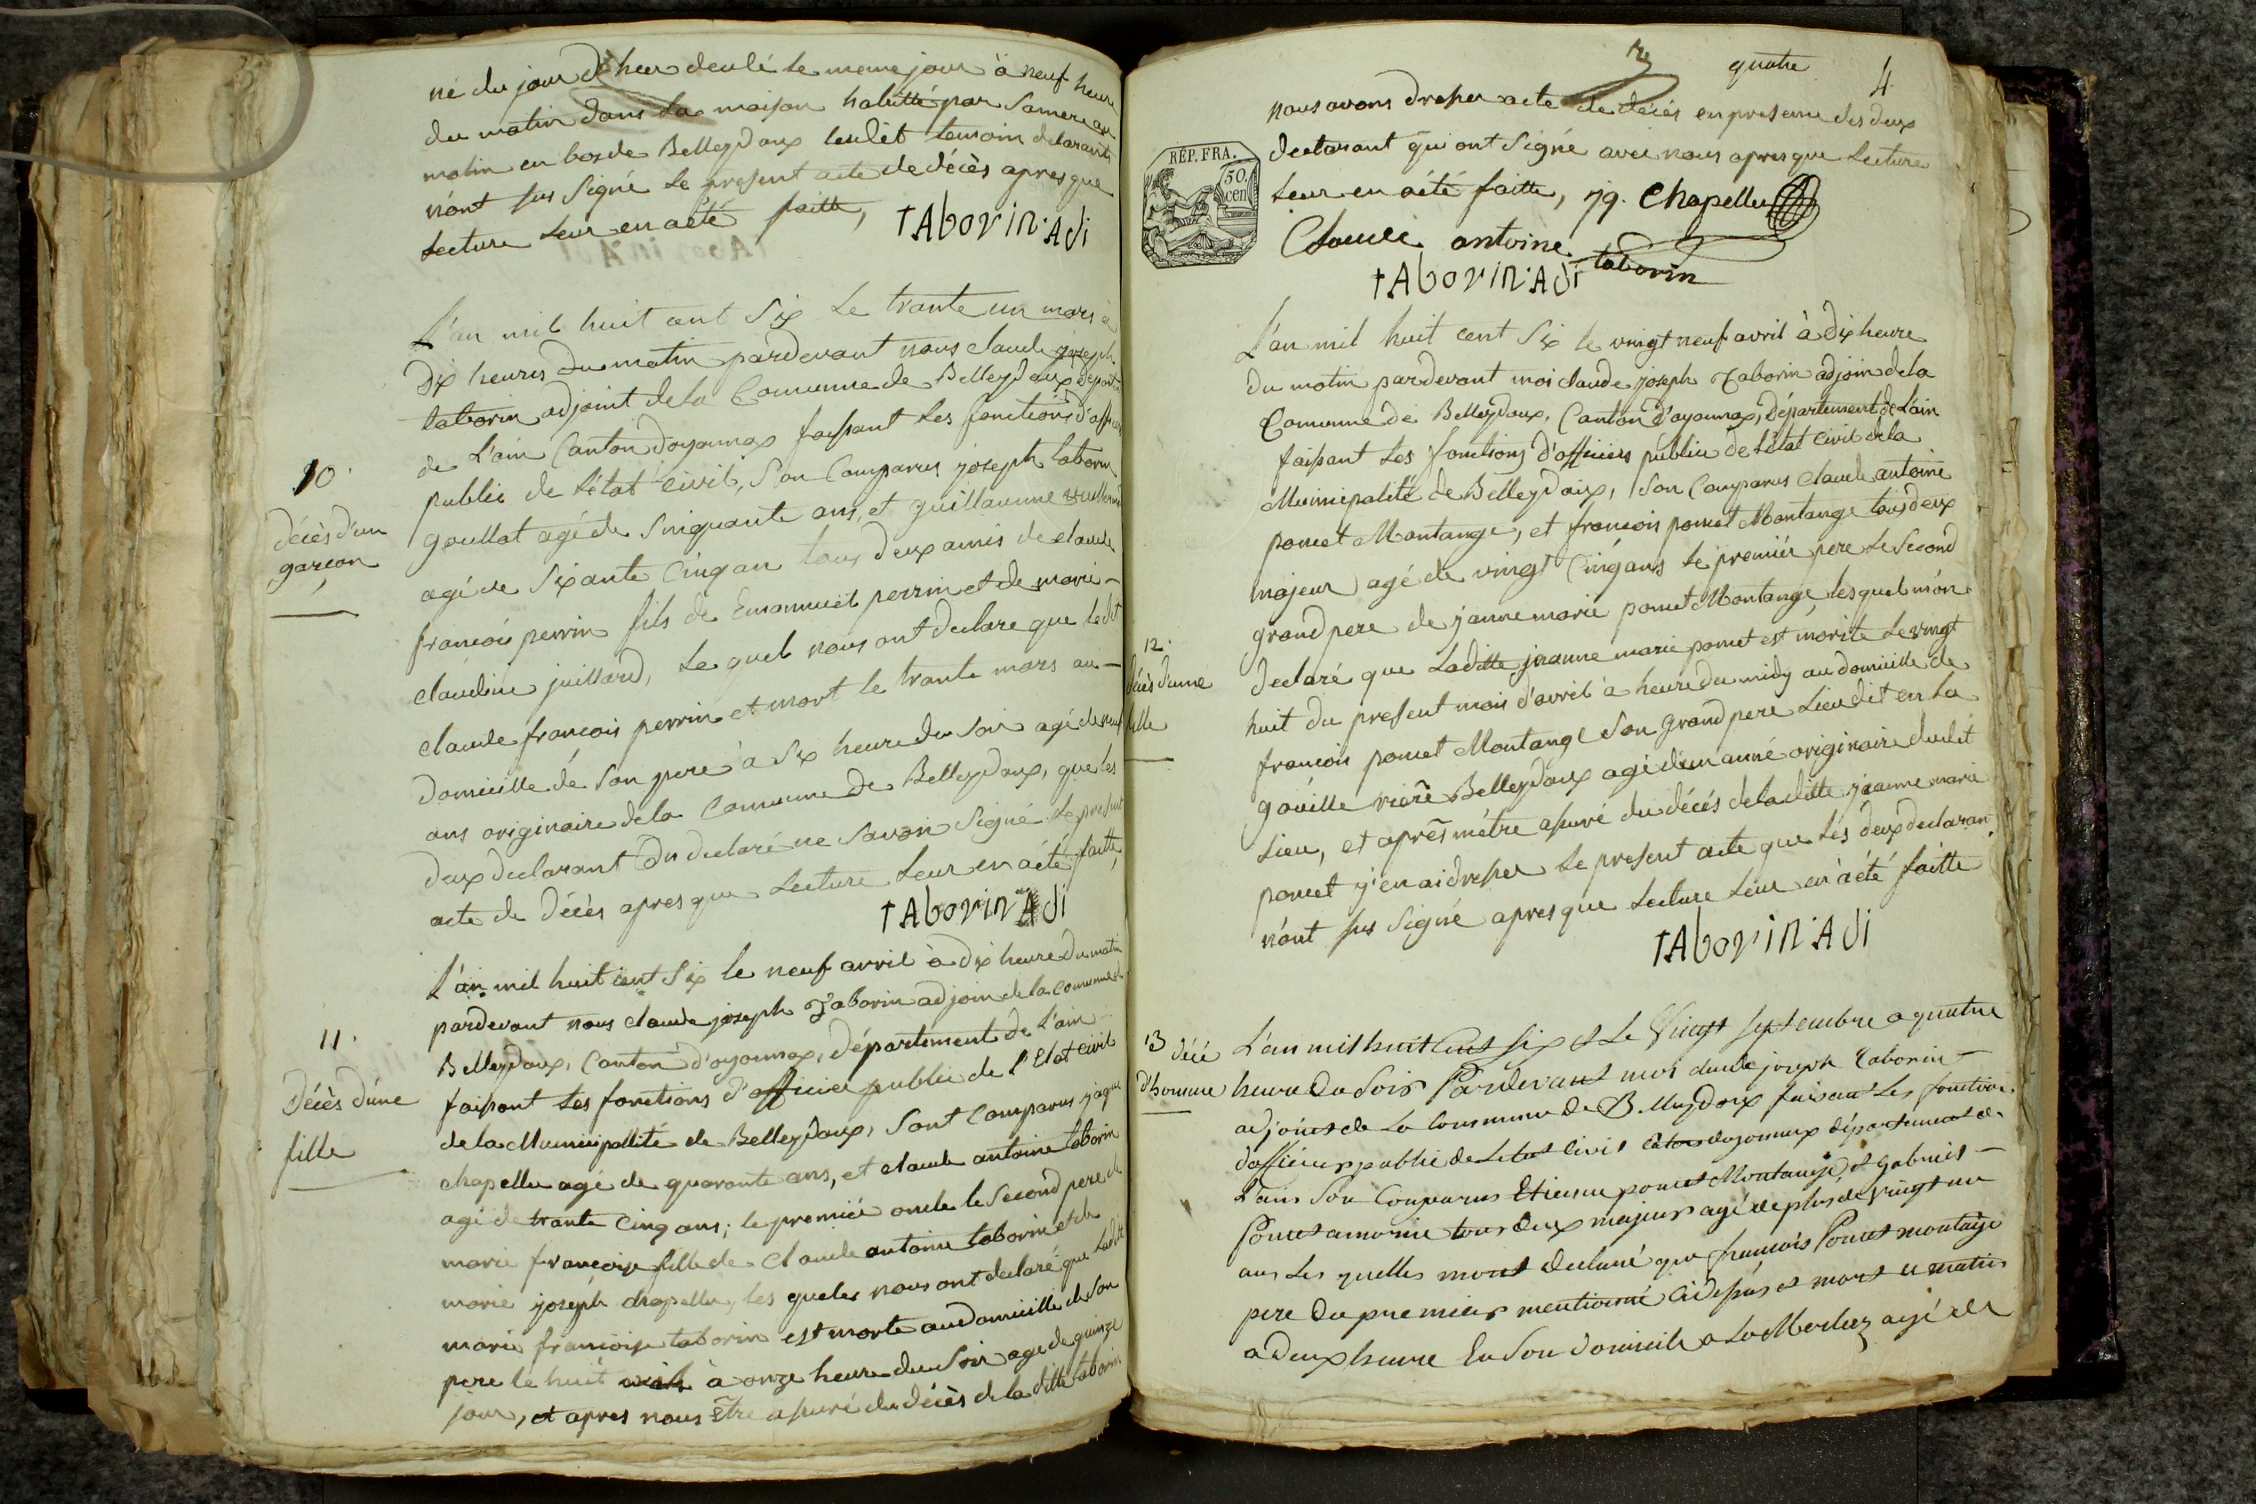 né du jour d'hier deulé le meme jour à neuf heure
du matin dans la maison habitté par sa mere au
molin en bas de Belleydoux lesdit temoin declarants
n'ont sus signé le present acte de décès apres que
lecture leur en a été faitte,
tAborin·Adi
10.
décès d'un
garçon
L'an mil huit cent six le trante un mars à
dix heures du matin pardevant nous claude joseph
taborin adjoint de la Comunne de Belleydoux depart
de L'ain Canton d'oyonnax faisant les fonctions d'officier
public de l'état civil, son Comparus joseph taborin
goullat agé de sinquante ans, et guillaume vuillermoz
agé de sixante Cinq an tous deux amis de claude
francois perrin fils de Emannuel perrin et de marie-
claudine juillard, le quel nous ont declare que ledit
claude francois perrin et mort le trante mars au-
domicille de son pere à six heure du soir agé de neuf
ans originaire de la Comunne de Belleydoux, que les
deux declarant du declaré ne savoir signé le present
acte de décès apres que lecture leur en a été faitte,
tAborin Adi
11.
Décès d'une
fille
L'an mil huit cent six le neuf avril à dix heure du matin
pardevant nous claude joseph Taborin adjoin de la comunne de
Belleydoux, Canton d'oyonnax, département de L'ain-
faisant les fonctions d'officier public de l'Etat civil
de la Municipallité de Belleydoux, sont Comparus jaque
chapellu agé de quarante ans, et claude antoine taborin
agé de trante cinq ans; le premier oncle le second pere de
marie francoise fille de claude antoine taborin et de
marie joseph chapellu, les queles nous ont declaré que ladit
marie francoise taborin est morte au domicille de son
pere le huit avril à onze heure du soir agé de quinze
jour, et apres nous être assuré du décès de la ditte taborin
quatre
4.
nous avons dresser acte de décès en presense des deux
declarant qui ont signé avec nous apres que lecture
leur en a été faitte, jq. chapellu
REP. FRA.
50.
cen
Claude antoine
taborin
tAborin·Adi
12.
décès d'une
fille
L'an mil huit cent six le vingt neuf avril à dix heure
du matin pardevant moi claude joseph Taborin adjoin de la
Comunne de Belleydoux, Canton d'oyonnax, Département de L'ain
faisant les fonctions d'officier public de l'état civil de la
Municipalité de Belleydoux, son Comparus claude antoine
poncet Montange, et francois poncet Montange tous deux
majeur agé de vingt Cinq ans le premier pere le second
grand pere de jeanne marie poncet Montange, lesquel m'on
declaré que laditte jeanne marie poncet est morte le vingt
huit du present mois d'avril à heure du midy au domicille de
francois poncet Montange son grand pere lieu dit en la
gouille riere Belleydoux agé d'un anné originaire dudit
lieu, et apres m'être assuré du décès de la ditte jeanne marie
poncet j'en ai dresser le present acte que les deux declaran
n'ont sus signé apres que lecture leur en a été faitte
tAborin·Adi
13 décé
d'homme
L'an mil huit cent six et le Vingt septembre a quatre
heure du soir Pardevant moi claude joseph Taborin-
adjoint de la Commune de Belleydoux faisant les fonction
d'officier public de letat civil canton doyonnax département de
Lain son Comparus Etienne poncet Montange et gabriel-
Poncet tous deux majeurs agé de plus de vingt un
ans les quelles mont declaré que francois Poncet montange
pere du premier mentionné cidesus et mort ce matin
a deux heure en son domicile a agé de